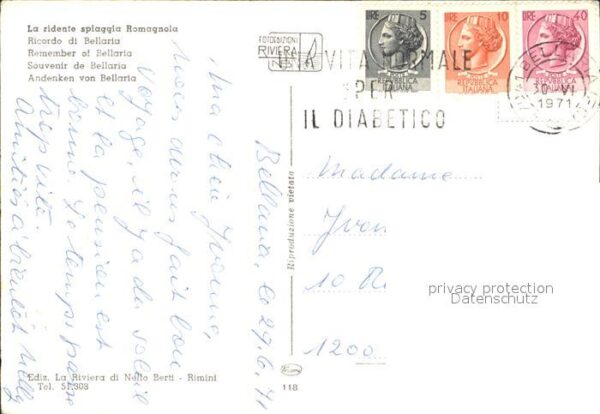 La ridente spiaggia Romagnola
Ricordo di Bellaria
Remember of Bellaria
Souvenir de Bellaria
Andenken von Bellaria
FOTOEDIZIONI
RIVIERA
LIRE 5
LIRE 10
LIRE 40
REPUBBLICA ITALIANA
REPUBBLICA ITALIANA
REPUBBLICA ITALIANA
UNA VITA NORMALE
PER
IL DIABETICO
30 VI
1971
Bellaria, le 29.6.71
Ma chère Yvonne,
Nous avons fait bon
voyage, il y a du soleil
et la pension est
bonne. Le temps passe
trop vite.
Amitiés à bientôt Nelly
Riproduzione vietata
Madame
Yvon
10 R
1200
privacy protection
Datenschutz
Ediz. La Riviera di Nello Berti - Rimini
Tel. 51.308
118